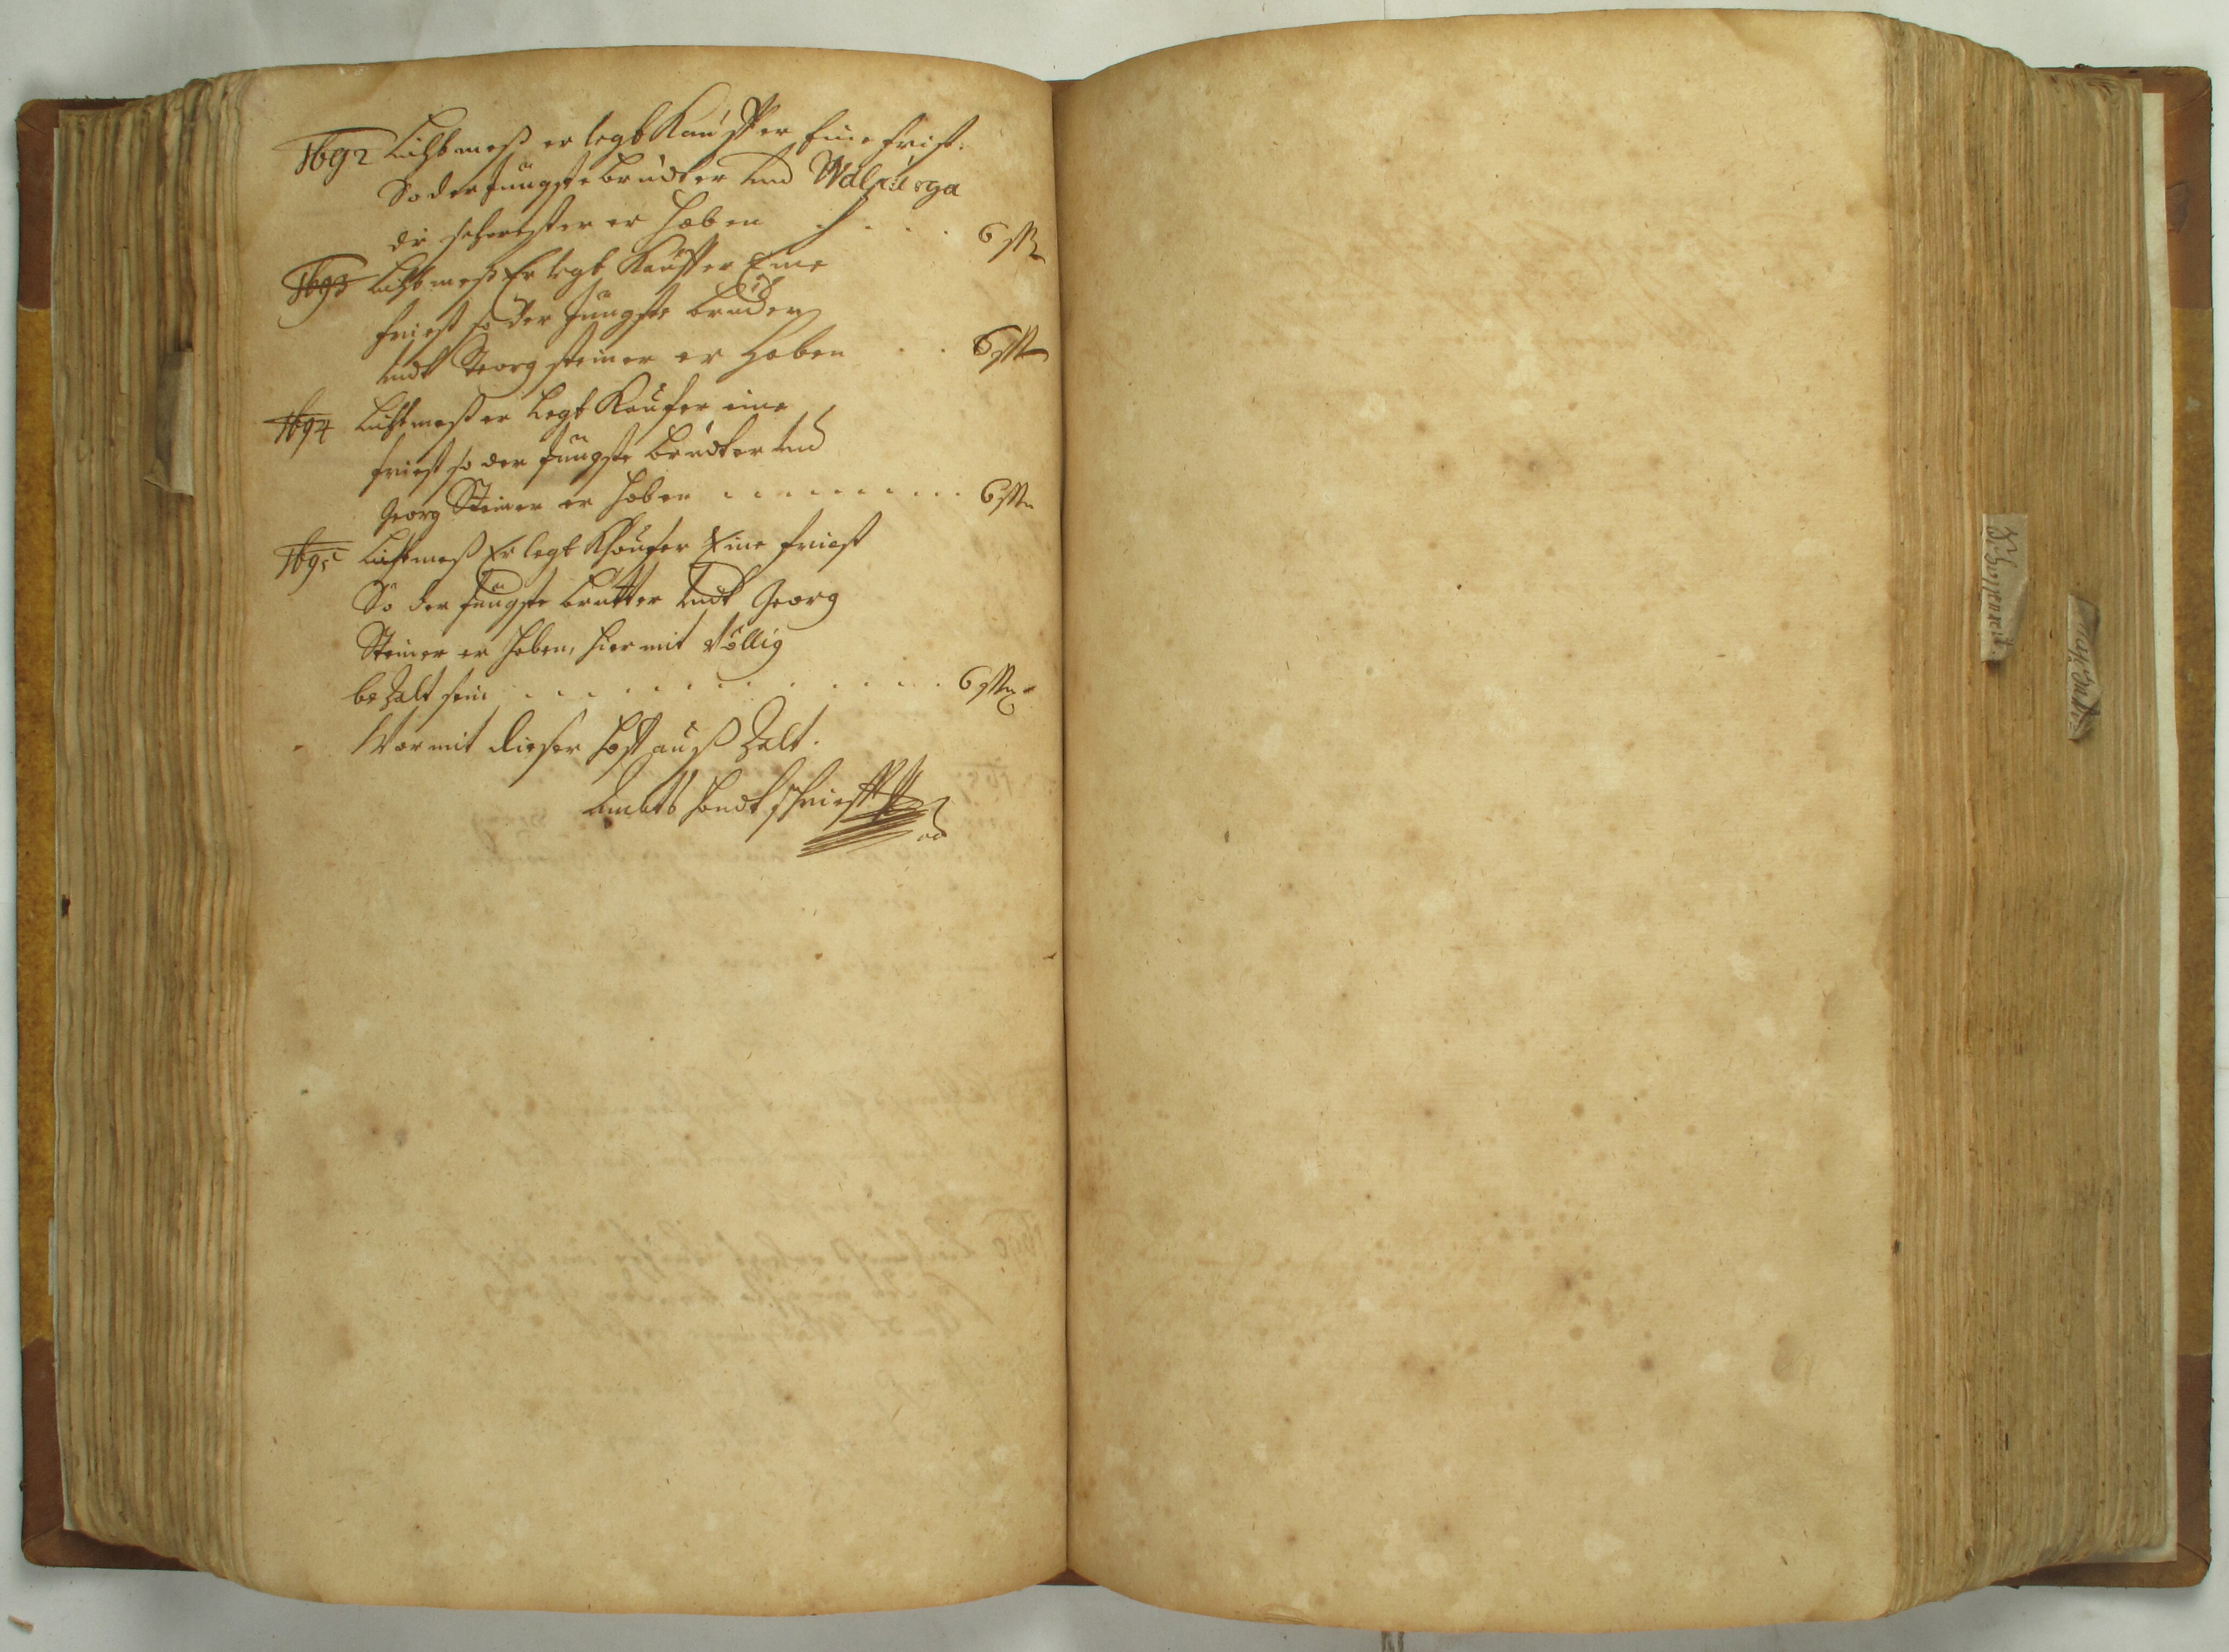 1692 Lichtmeß er legt Kauffer Eine frist.
So der Jüngste brudter und Walpurga
die schwester er haben . . . . 6 ßr
1693 Lichtmeß Er legt Kauffer Eine
friest so der Jungste bruder
undt Georg steiner er haben . . 6 ßr
1694 Lichtmeß er Legt Kaufer eine
friest so der Jüngste brudter und
Georg Steiner er haben . . . . . . . . . 6 ßr
1695 Lichtmeß Er legt Khaufer Eine friest
So der Jüngste brutter undt Georg
Steiner er haben, hiermit Völlig
be Zalt sein . . . . . . . . . . . . . 6 ßr
Wormit dieser Post auß Zalt.
Ambts handtschriefft